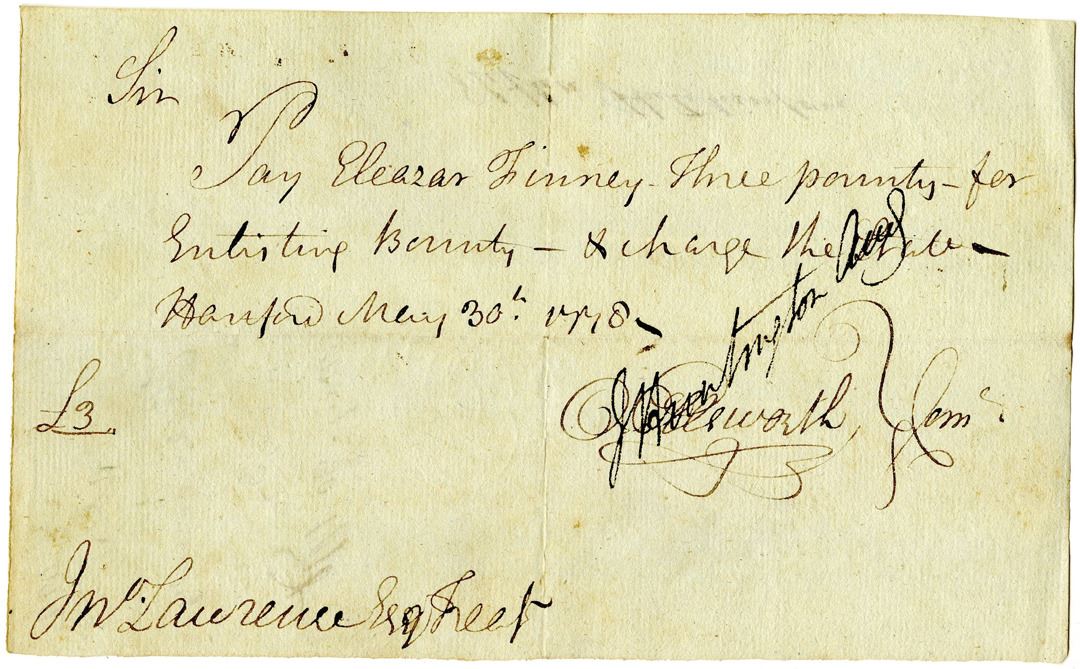 Sir
Pay Eleazar Finney - Three pounds - for
Enlisting Bounty - & charge the State -
Hartford May 30th. 1778
J Huntington
£3.
Ellsworth, } Comte.
Jno. Lawrence Esq Treasr